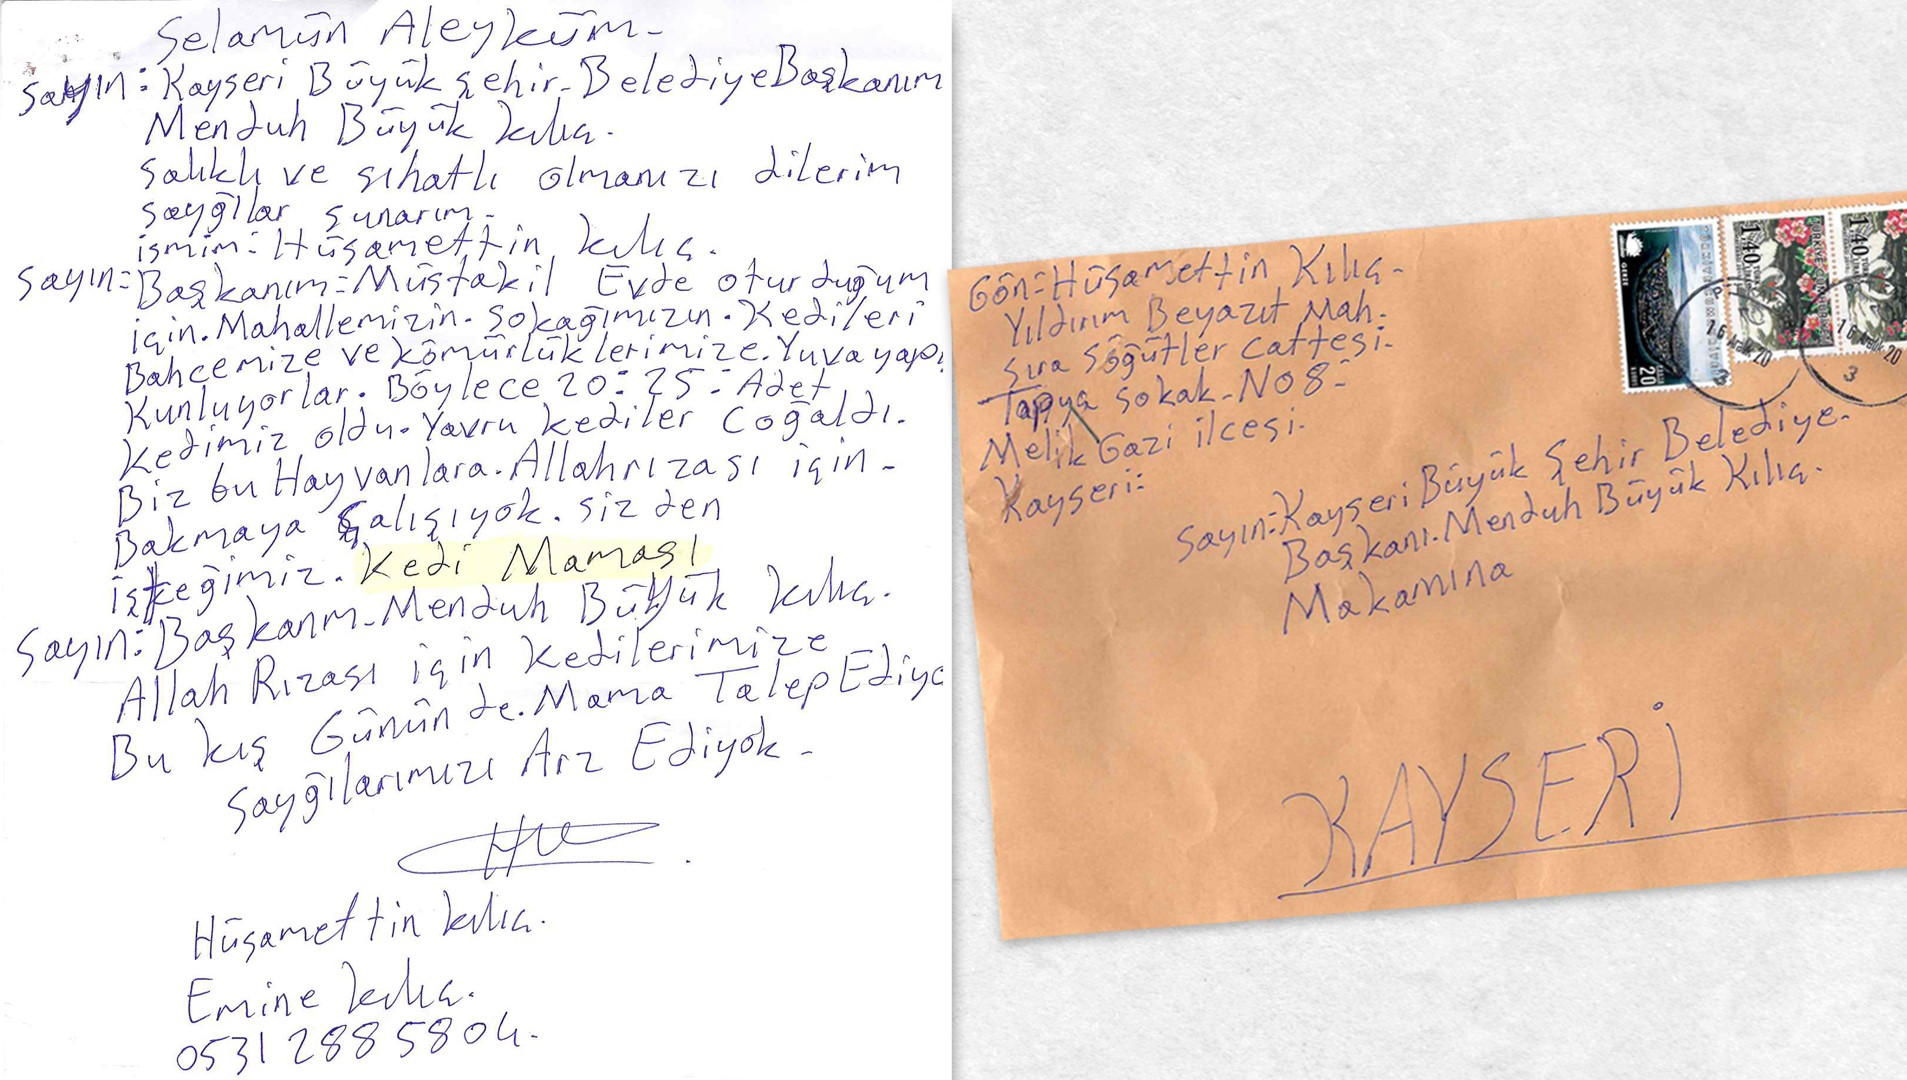 Selamün Aleyküm-
sayın: Kayseri Büyük şehir- Belediye Başkanım
Menduh Büyük kılıç.
salıklı ve sıhatlı olmanızı dilerim
sayğılar sunarım-
ismim: Hüsamettin kılıç.
sayın: Başkanım: Müstakil Evde oturduğum
için. Mahallemizin. Sokağımızın. Kedileri
Bahcemize ve kömürlüklerimize. Yuva yapı
Kunluyorlar. Böylece 20: 25: Adet
kedimiz oldu. Yavru kediler Coğaldı.
Biz bu Hayvanlara. Allah rızası için-
Bakmaya çalışıyok. siz den
isteğimiz. Kedi Maması
sayın: Başkanm. Menduh Büyük kılıç.
Allah Rızası için kedilerimize
Bu kış Günün de. Mama Talep Ediyo
sayğılarımızı Arz Ediyok-
Hüsamettin kılıç.
Emine kılıç.
0531 288 58 04.
Gön: Hüsamettin Kılıç-
Yıldırım Beyazıt Mah.
Sıra Söğütler cattesi-
Tapya sokak- No 8-
Melik Gazi ilcesi.
Kayseri:
20
140
140
16 Aralık 20
16 Aralık 20
3
Sayın: Kayseri Büyük Şehir Belediye.
Başkanı. Menduh Büyük Kılıç.
Makamına
KAYSERİ